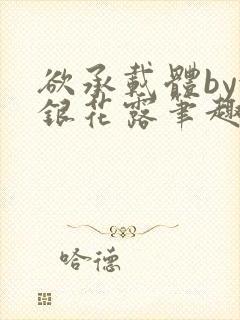 欲承載體by
銀花露筆趣
哈德